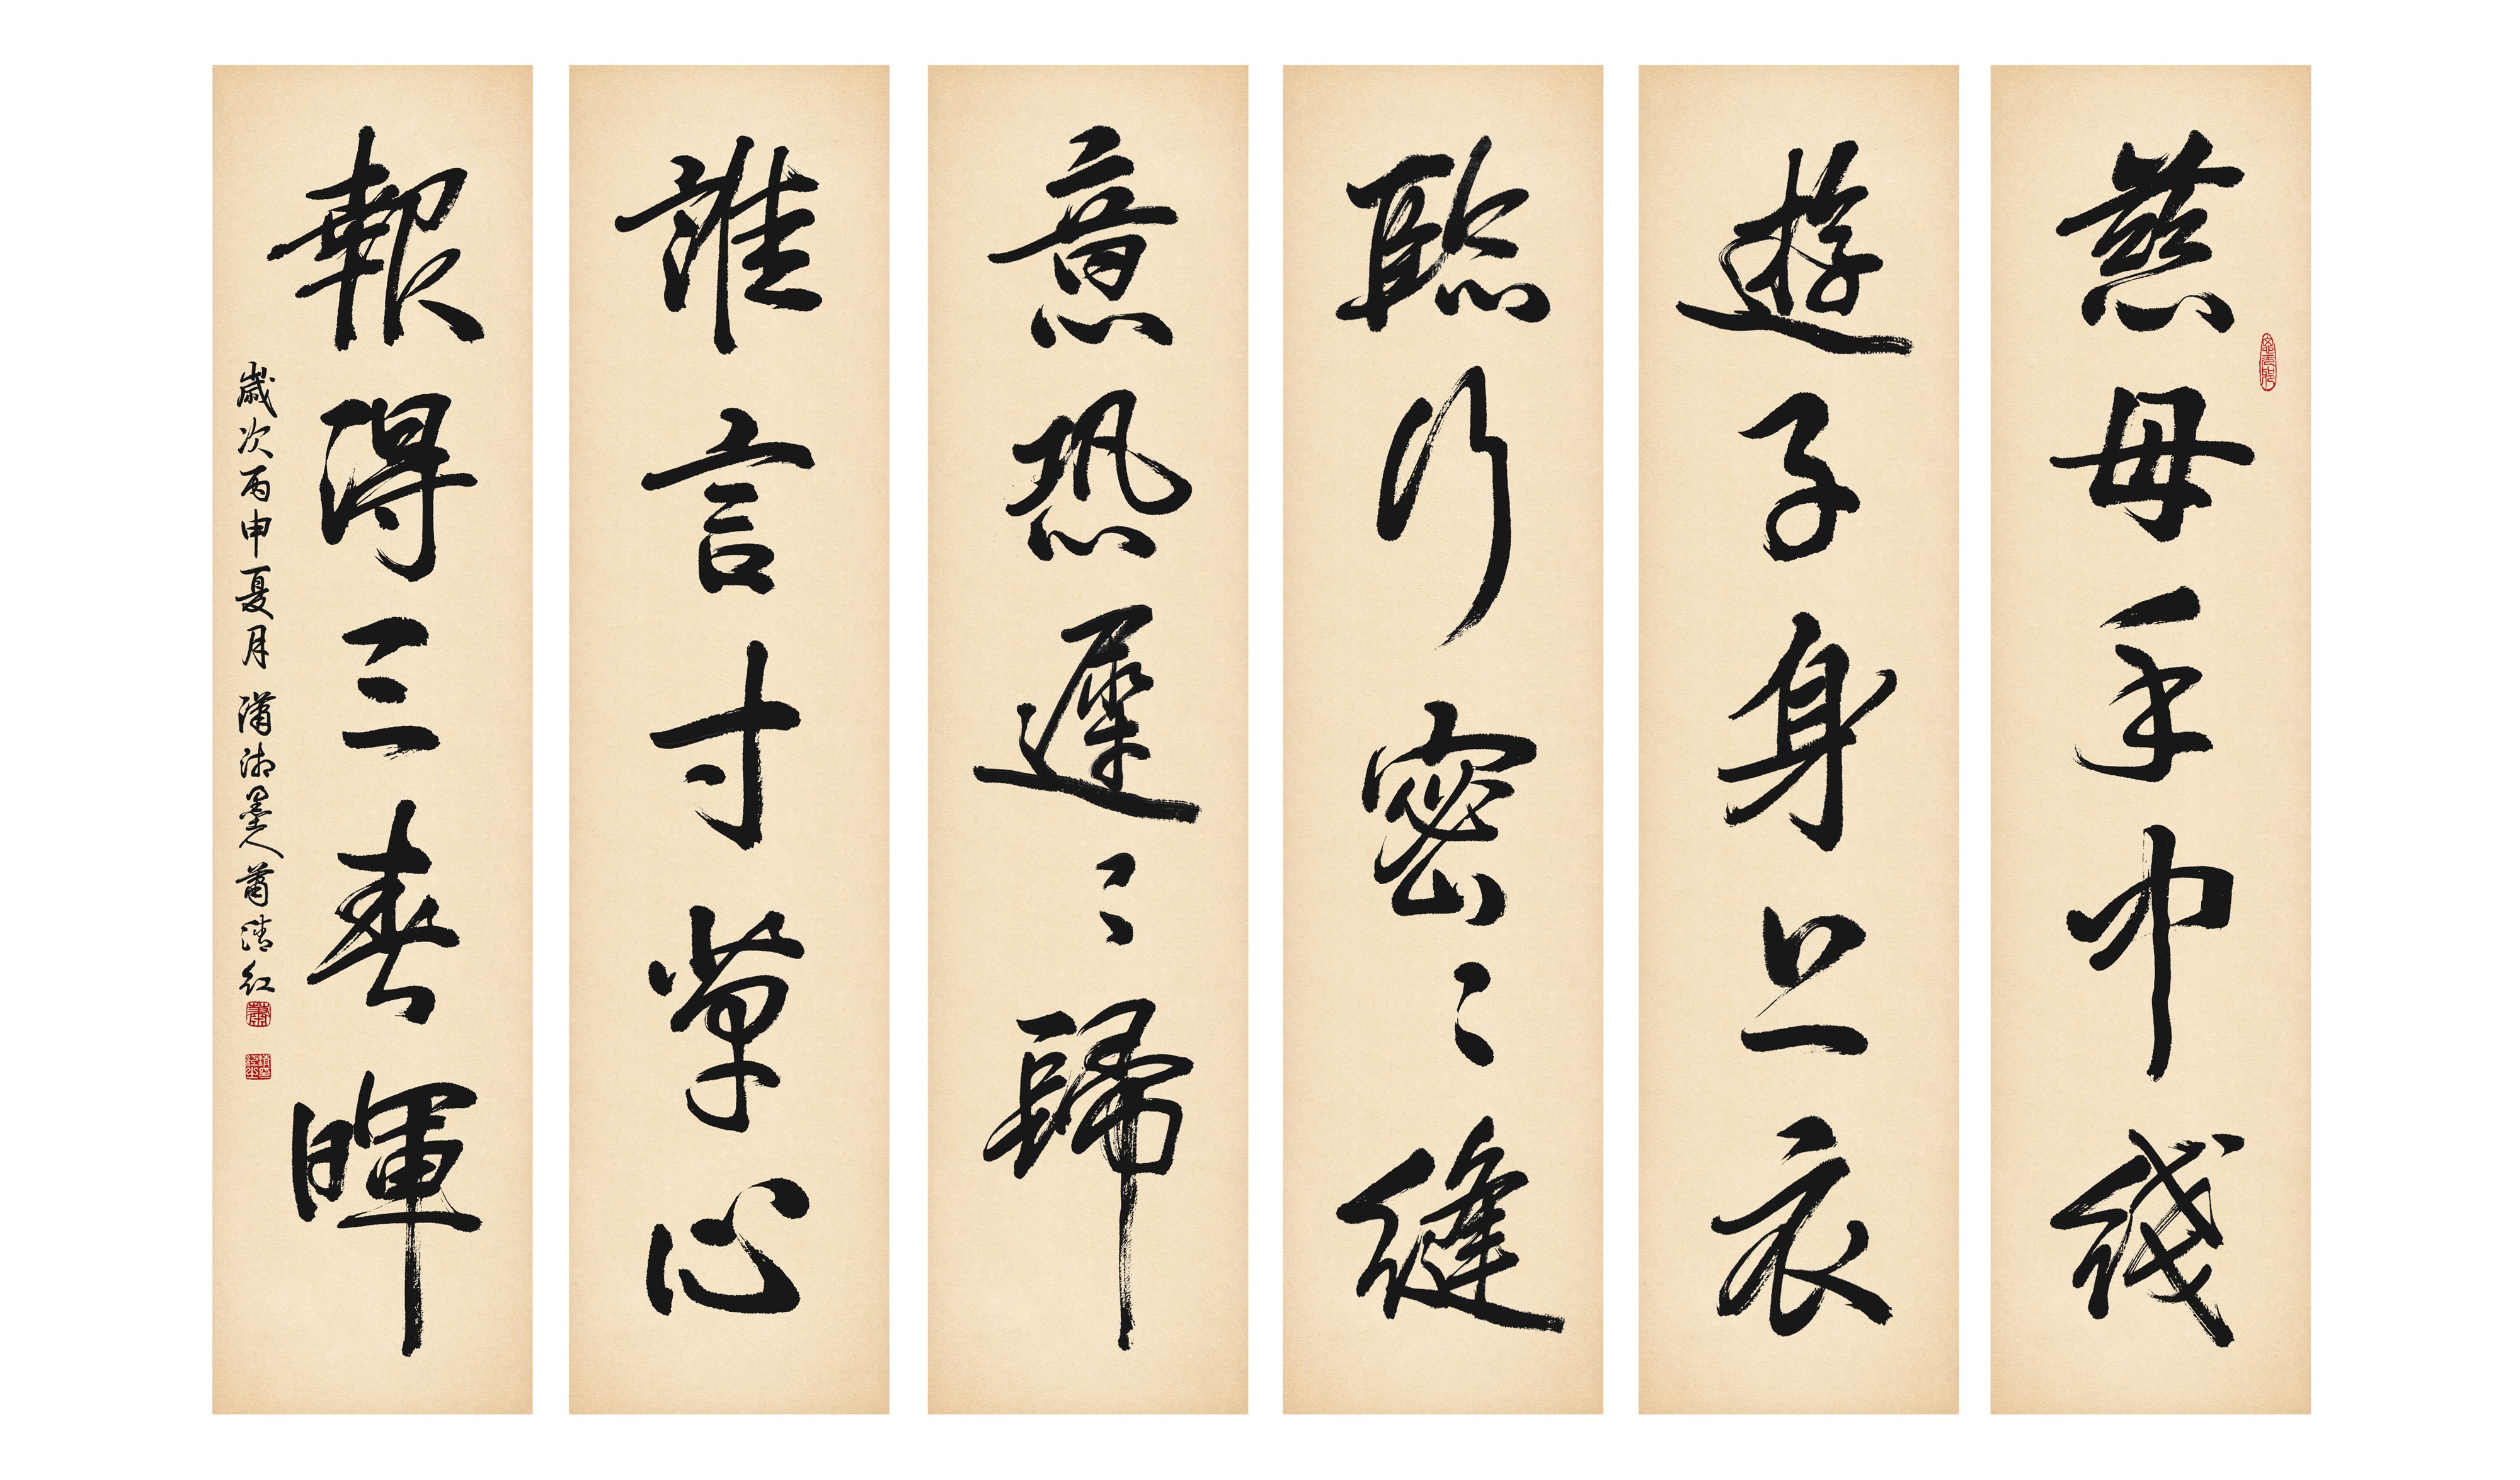 慈母手中线
遊子身上衣
臨行密〻縫
意恐遲〻歸
誰言寸草心
報得三春暉
歲次丙申夏月 瀟湘墨人蕭清紅